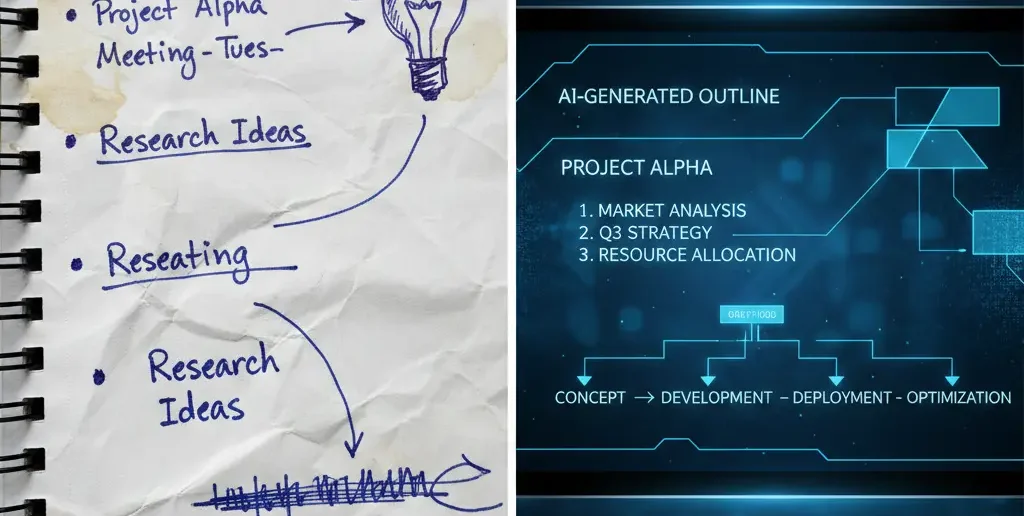 Project Alpha
Meeting - Tues-
Research Ideas
Reseating
Research
Ideas
AI-GENERATED OUTLINE
PROJECT ALPHA
1. MARKET ANALYSIS
2. Q3 STRATEGY
3. RESOURCE ALLOCATION
CONCEPT → DEVELOPMENT – DEPLOYMENT - OPTIMIZATION